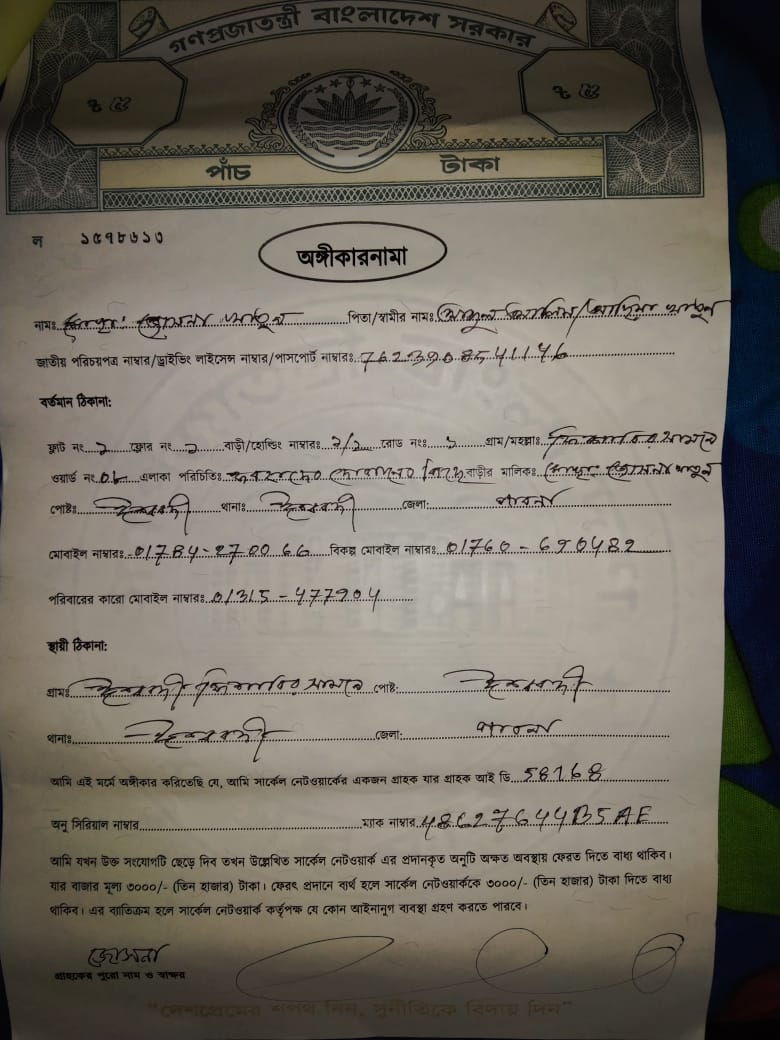 গণপ্রজাতন্ত্রী বাংলাদেশ সরকার
৳ ৫ ৳ ৫
পাঁচ টাকা
ল ১৫৭৮৬১৩
অঙ্গীকারনামা
নামঃ মোছাঃ জোসনা খাতুন পিতা/স্বামীর নামঃ
জাতীয় পরিচয়পত্র নাম্বার/ড্রাইভিং লাইসেন্স নাম্বার/পাসপোর্ট নাম্বারঃ 7623908541146
বর্তমান ঠিকানা:
ফ্লাট নং ১ ফ্লোর নং ১ বাড়ী/হোল্ডিং নাম্বারঃ ২/১ রোড নংঃ ১ গ্রাম/মহল্লাঃ সামনে
ওয়ার্ড নং এলাকা পরিচিতিঃ বাড়ীর মালিকঃ মোছাঃ জোসনা খাতুন
পোষ্টঃ ঈশ্বরদী থানাঃ ঈশ্বরদী জেলা: পাবনা
মোবাইল নাম্বারঃ 01784-270066 বিকল্প মোবাইল নাম্বারঃ 01760-690482
পরিবারের কারো মোবাইল নাম্বারঃ 01315-477904
স্থায়ী ঠিকানা:
গ্রামঃ ঈশ্বরদী সামনে পোষ্ট: ঈশ্বরদী
থানাঃ ঈশ্বরদী জেলা: পাবনা
আমি এই মর্মে অঙ্গীকার করিতেছি যে, আমি সার্কেল নেটওয়ার্কের একজন গ্রাহক যার গ্রাহক আই ডি 58168
অনু সিরিয়াল নাম্বার ম্যাক নাম্বার 48627644B5AE
আমি যখন উক্ত সংযোগটি ছেড়ে দিব তখন উল্লেখিত সার্কেল নেটওয়ার্ক এর প্রদানকৃত অনুটি অক্ষত অবস্থায় ফেরত দিতে বাধ্য থাকিব।
যার বাজার মূল্য ৩০০০/- (তিন হাজার) টাকা। ফেরৎ প্রদানে ব্যর্থ হলে সার্কেল নেটওয়ার্ককে ৩০০০/- (তিন হাজার) টাকা দিতে বাধ্য
থাকিব। এর ব্যাতিক্রম হলে সার্কেল নেটওয়ার্ক কর্তৃপক্ষ যে কোন আইনানুগ ব্যবস্থা গ্রহণ করতে পারবে।
জোসনা
গ্রাহকের পুরো নাম ও স্বাক্ষর
"দেশপ্রেমের শপথ নিন, দুর্নীতিকে বিদায় দিন"